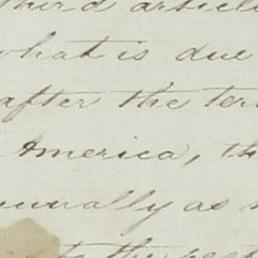 third article
what is due
after the ter
America, th
nually as
to the